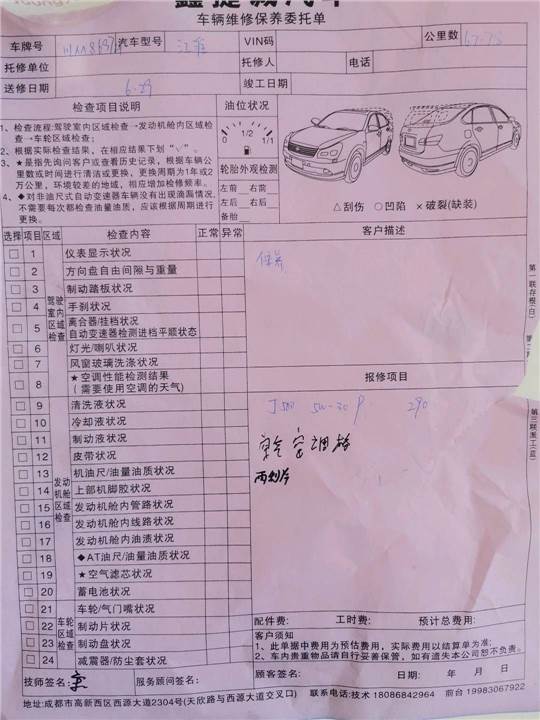 车辆维修保养委托单
车牌号 汽车型号 江淮 VIN码 公里数
托修单位 托修人 电话
送修日期 6.29 竣工日期
检查项目说明
1、检查流程:驾驶室内区域检查→发动机舱内区域检查→车轮区域检查;
2、根据实际检查结果，在相应结果下划"√"。
3、★是指先询问客户或查看历史记录，根据车辆公里数或时间进行清洁或更换，更换周期为1年或2万公里，环境较差的地域，相应增加检修频率。
4、◆对非油尺式自动变速器车辆没有出现滴漏情况，不需要每次都检查油量油质，应该根据周期进行更换。
油位状况
0 1/2 1/1
轮胎外观检测
左前 右前
左后 右后
备胎
△刮伤 ○凹陷 ×破裂(缺装)
选择 项目 区域 检查内容 正常 异常
驾驶室内区域检查
1 仪表显示状况
2 方向盘自由间隙与重量
3 制动踏板状况
4 手刹状况
5 离合器/挂档状况
自动变速器检测进档平顺状态
6 灯光/喇叭状况
7 风窗玻璃洗涤状况
8 ★空调性能检测结果
(需要使用空调的天气)
发动机舱区域检查
9 清洗液状况
10 冷却液状况
11 制动液状况
12 皮带状况
13 机油尺/油量油质状况
14 上部机脚胶状况
15 发动机舱内管路状况
16 发动机舱内线路状况
17 发动机舱内油渍状况
18 ◆AT油尺/油量油质状况
19 ★空气滤芯状况
20 蓄电池状况
车轮区域检查
21 车轮/气门嘴状况
22 制动片状况
23 制动盘状况
24 减震器/防尘套状况
客户描述
保养
报修项目
J500 5W-30 P 290
空调格
两刮片
配件费: 工时费: 预计总费用:
客户须知
1、此单据中费用为预估费用，实际费用以结算单为准;
2、车内贵重物品请自行妥善保管，如有遗失本公司恕不负责。
技师签名: 服务顾问签名: 顾客签名: 日期: 年 月 日
地址:成都市高新西区西源大道2304号(天欣路与西源大道交叉口) 联系电话:技术 18086842964 前台 19983067922
第一联存根(白)
第三联派工(蓝)